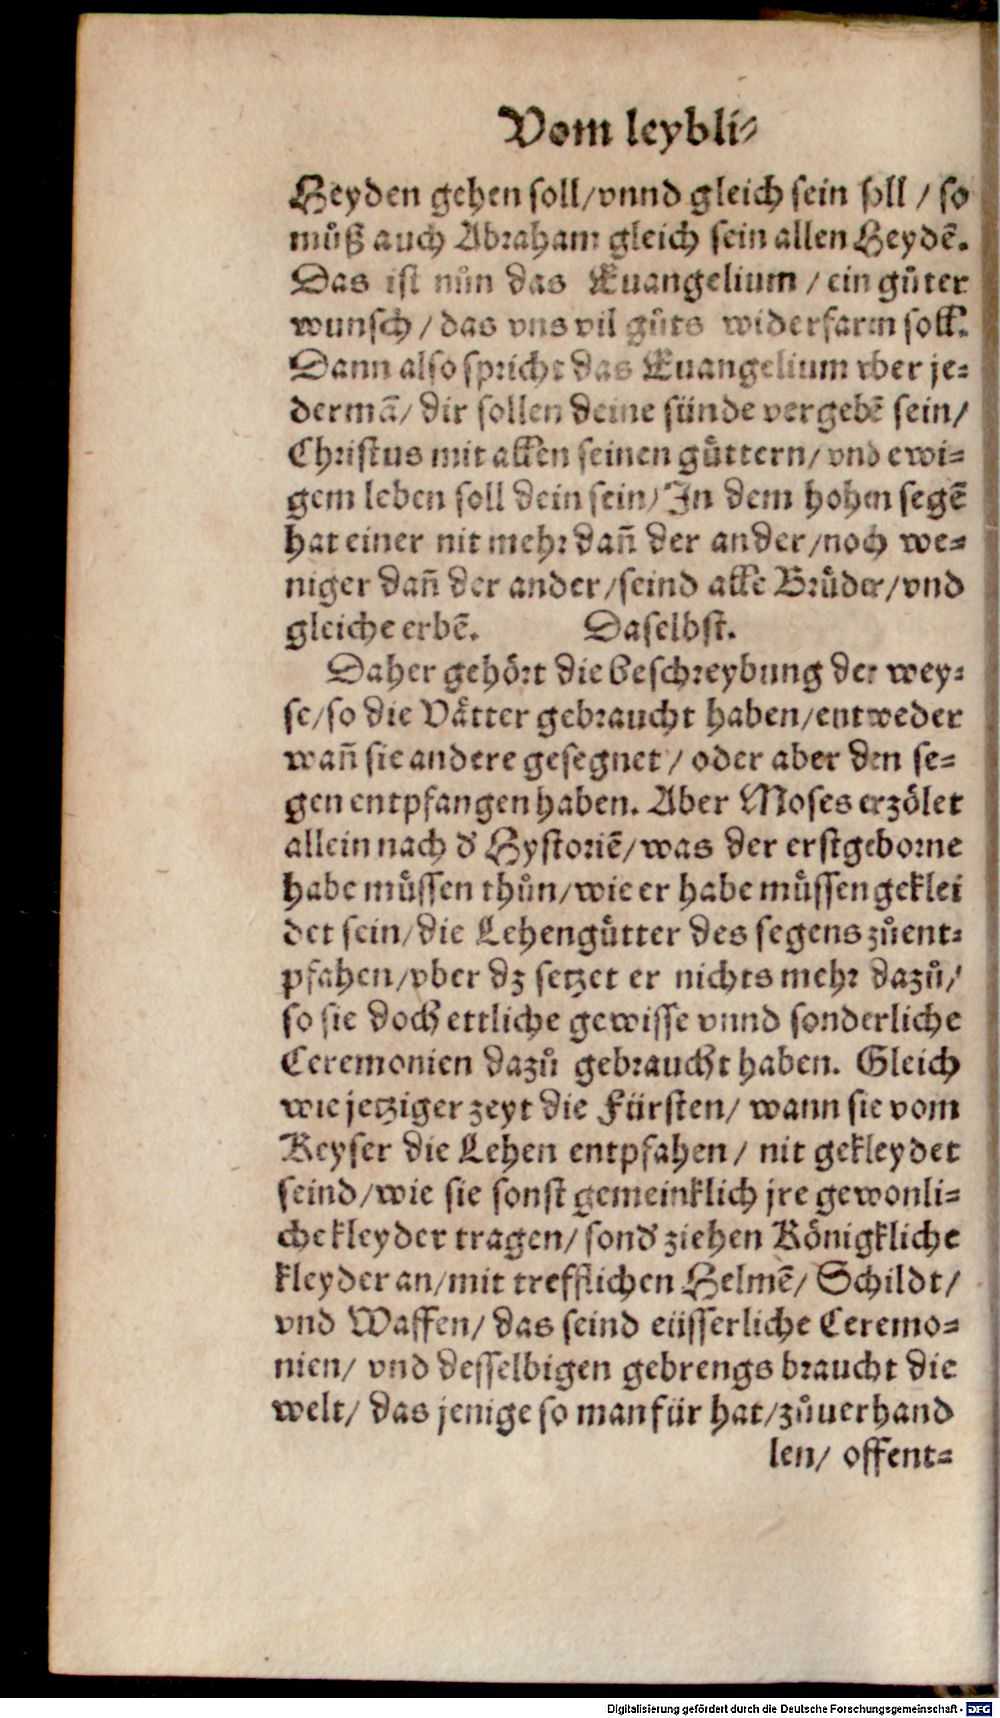 Vom leybli⸗
Heyden gehen soll/vnnd gleich sein soll / so
můß auch Abraham gleich sein allen Heydē.
Das ist nůn das Euangelium / ein gůter
wunsch / das vns vil gůts widerfarm soll.
Dann also spricht das Euangelium vber je⸗
dermā/ dir sollen deine sünde vergebē sein/
Christus mit allen seinen gůttern/ vnd ewi⸗
gem leben soll dein sein/ In dem hohen segē
hat einer nit mehr dañ der ander/noch we⸗
niger dañ der ander/seind alle Brůder/vnd
gleiche erbē. Daselbst.
Daher gehört die beschreybung der wey⸗
se/so die Vätter gebraucht haben/entweder
wañ sie andere gesegnet / oder aber den se⸗
gen entpfangen haben. Aber Moses erzölet
allein nach d̕ Hystoriē/was der erstgeborne
habe müssen thůn/wie er habe müssen geklei
det sein/die Lehengütter des segens zůent⸗
pfahen/vber dz setzet er nichts mehr dazů/
so sie doch ettliche gewisse vnnd sonderliche
Ceremonien dazů gebraucht haben. Gleich
wie jetziger zeyt die Fürsten/ wann sie vom
Keyser die Lehen entpfahen/ nit gekleydet
seind/wie sie sonst gemeinklich jre gewonli⸗
che kleyder tragen/ sond̕ ziehen Königkliche
kleyder an/mit trefflichen Helmē/ Schildt/
vnd Waffen/ das seind eüsserliche Ceremo⸗
nien/ vnd desselbigen gebrengs braucht die
welt/ das jenige so man für hat/zůuerhand
len/ offent⸗
Digitalisierung gefördert durch die Deutsche Forschungsgemeinschaft - DFG